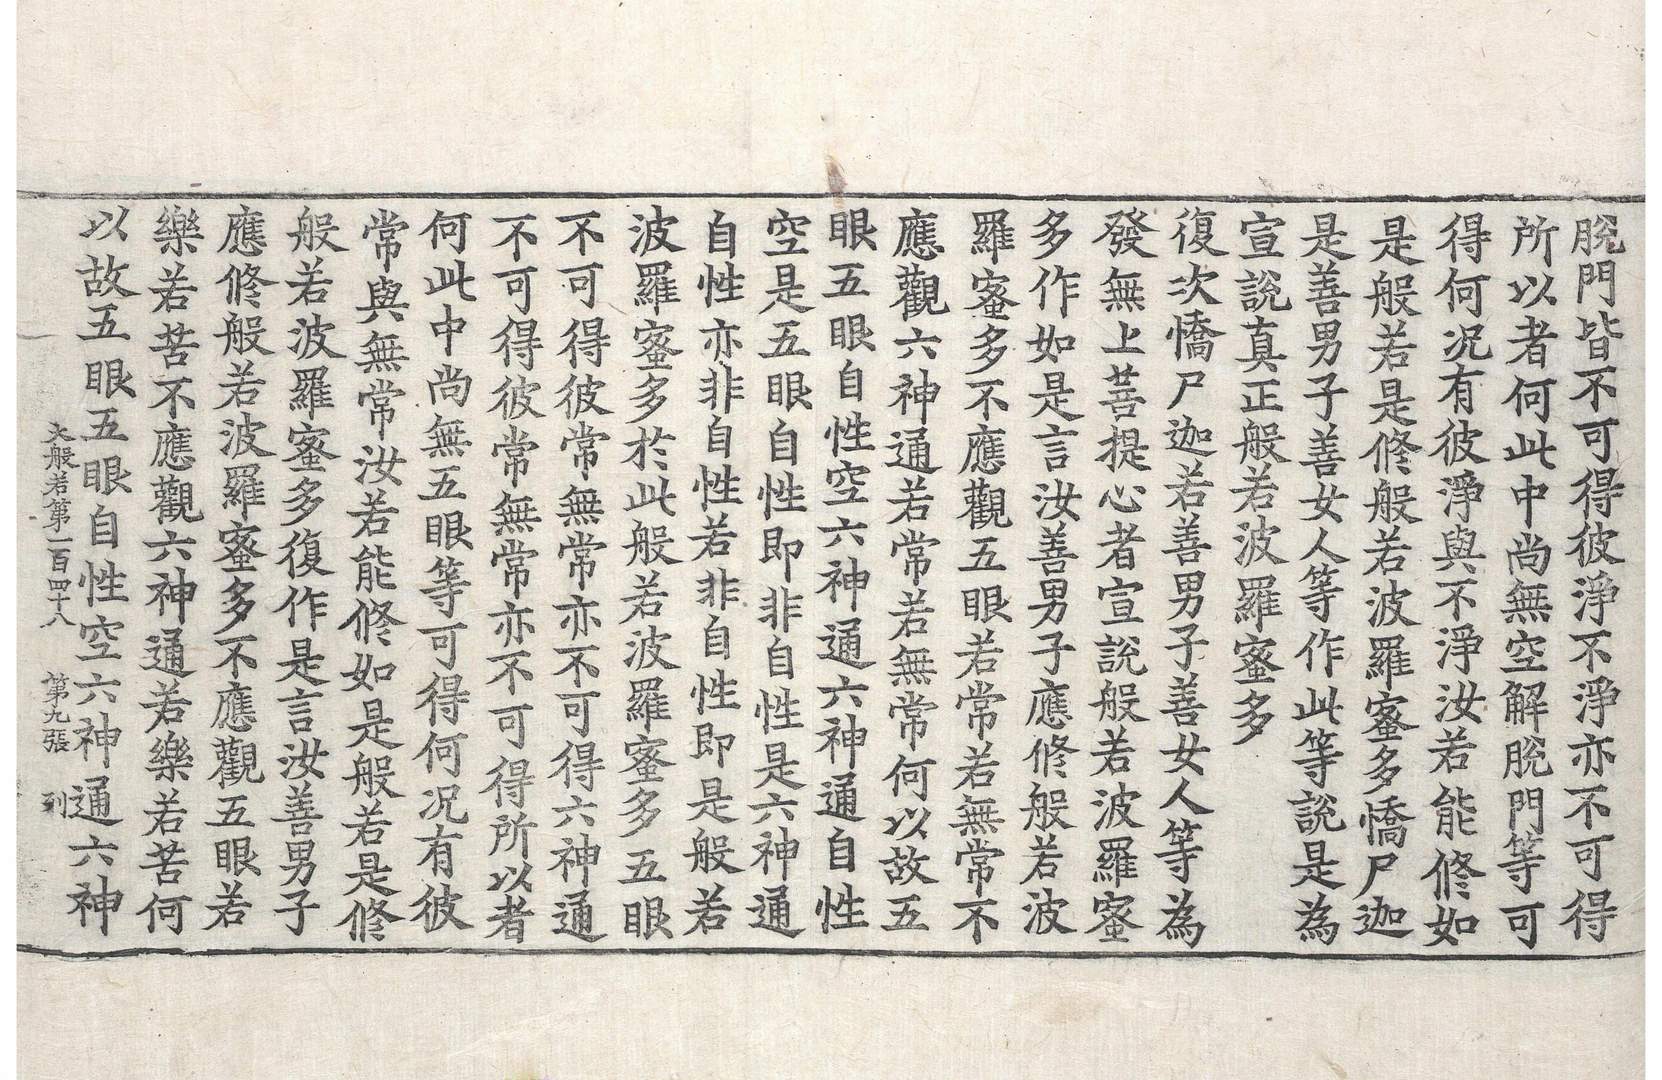 脫門皆不可得彼淨不淨亦不可得
所以者何此中尚無空解脫門等可
得何況有彼淨與不淨汝若能修如
是般若是修般若波羅蜜多憍尸迦
是善男子善女人等作此等說是為
宣說真正般若波羅蜜多
復次憍尸迦若善男子善女人等為
發無上菩提心者宣說般若波羅蜜
多作如是言汝善男子應修般若波
羅蜜多不應觀五眼若常若無常不
應觀六神通若常若無常何以故五
眼五眼自性空六神通六神通自性
空是五眼自性即非自性是六神通
自性亦非自性若非自性即是般若
波羅蜜多於此般若波羅蜜多五眼
不可得彼常無常亦不可得六神通
不可得彼常無常亦不可得所以者
何此中尚無五眼等可得何況有彼
常與無常汝若能修如是般若是修
般若波羅蜜多復作是言汝善男子
應修般若波羅蜜多不應觀五眼若
樂若苦不應觀六神通若樂若苦何
以故五眼五眼自性空六神通六神
大般若第一百四十八 第九張 列